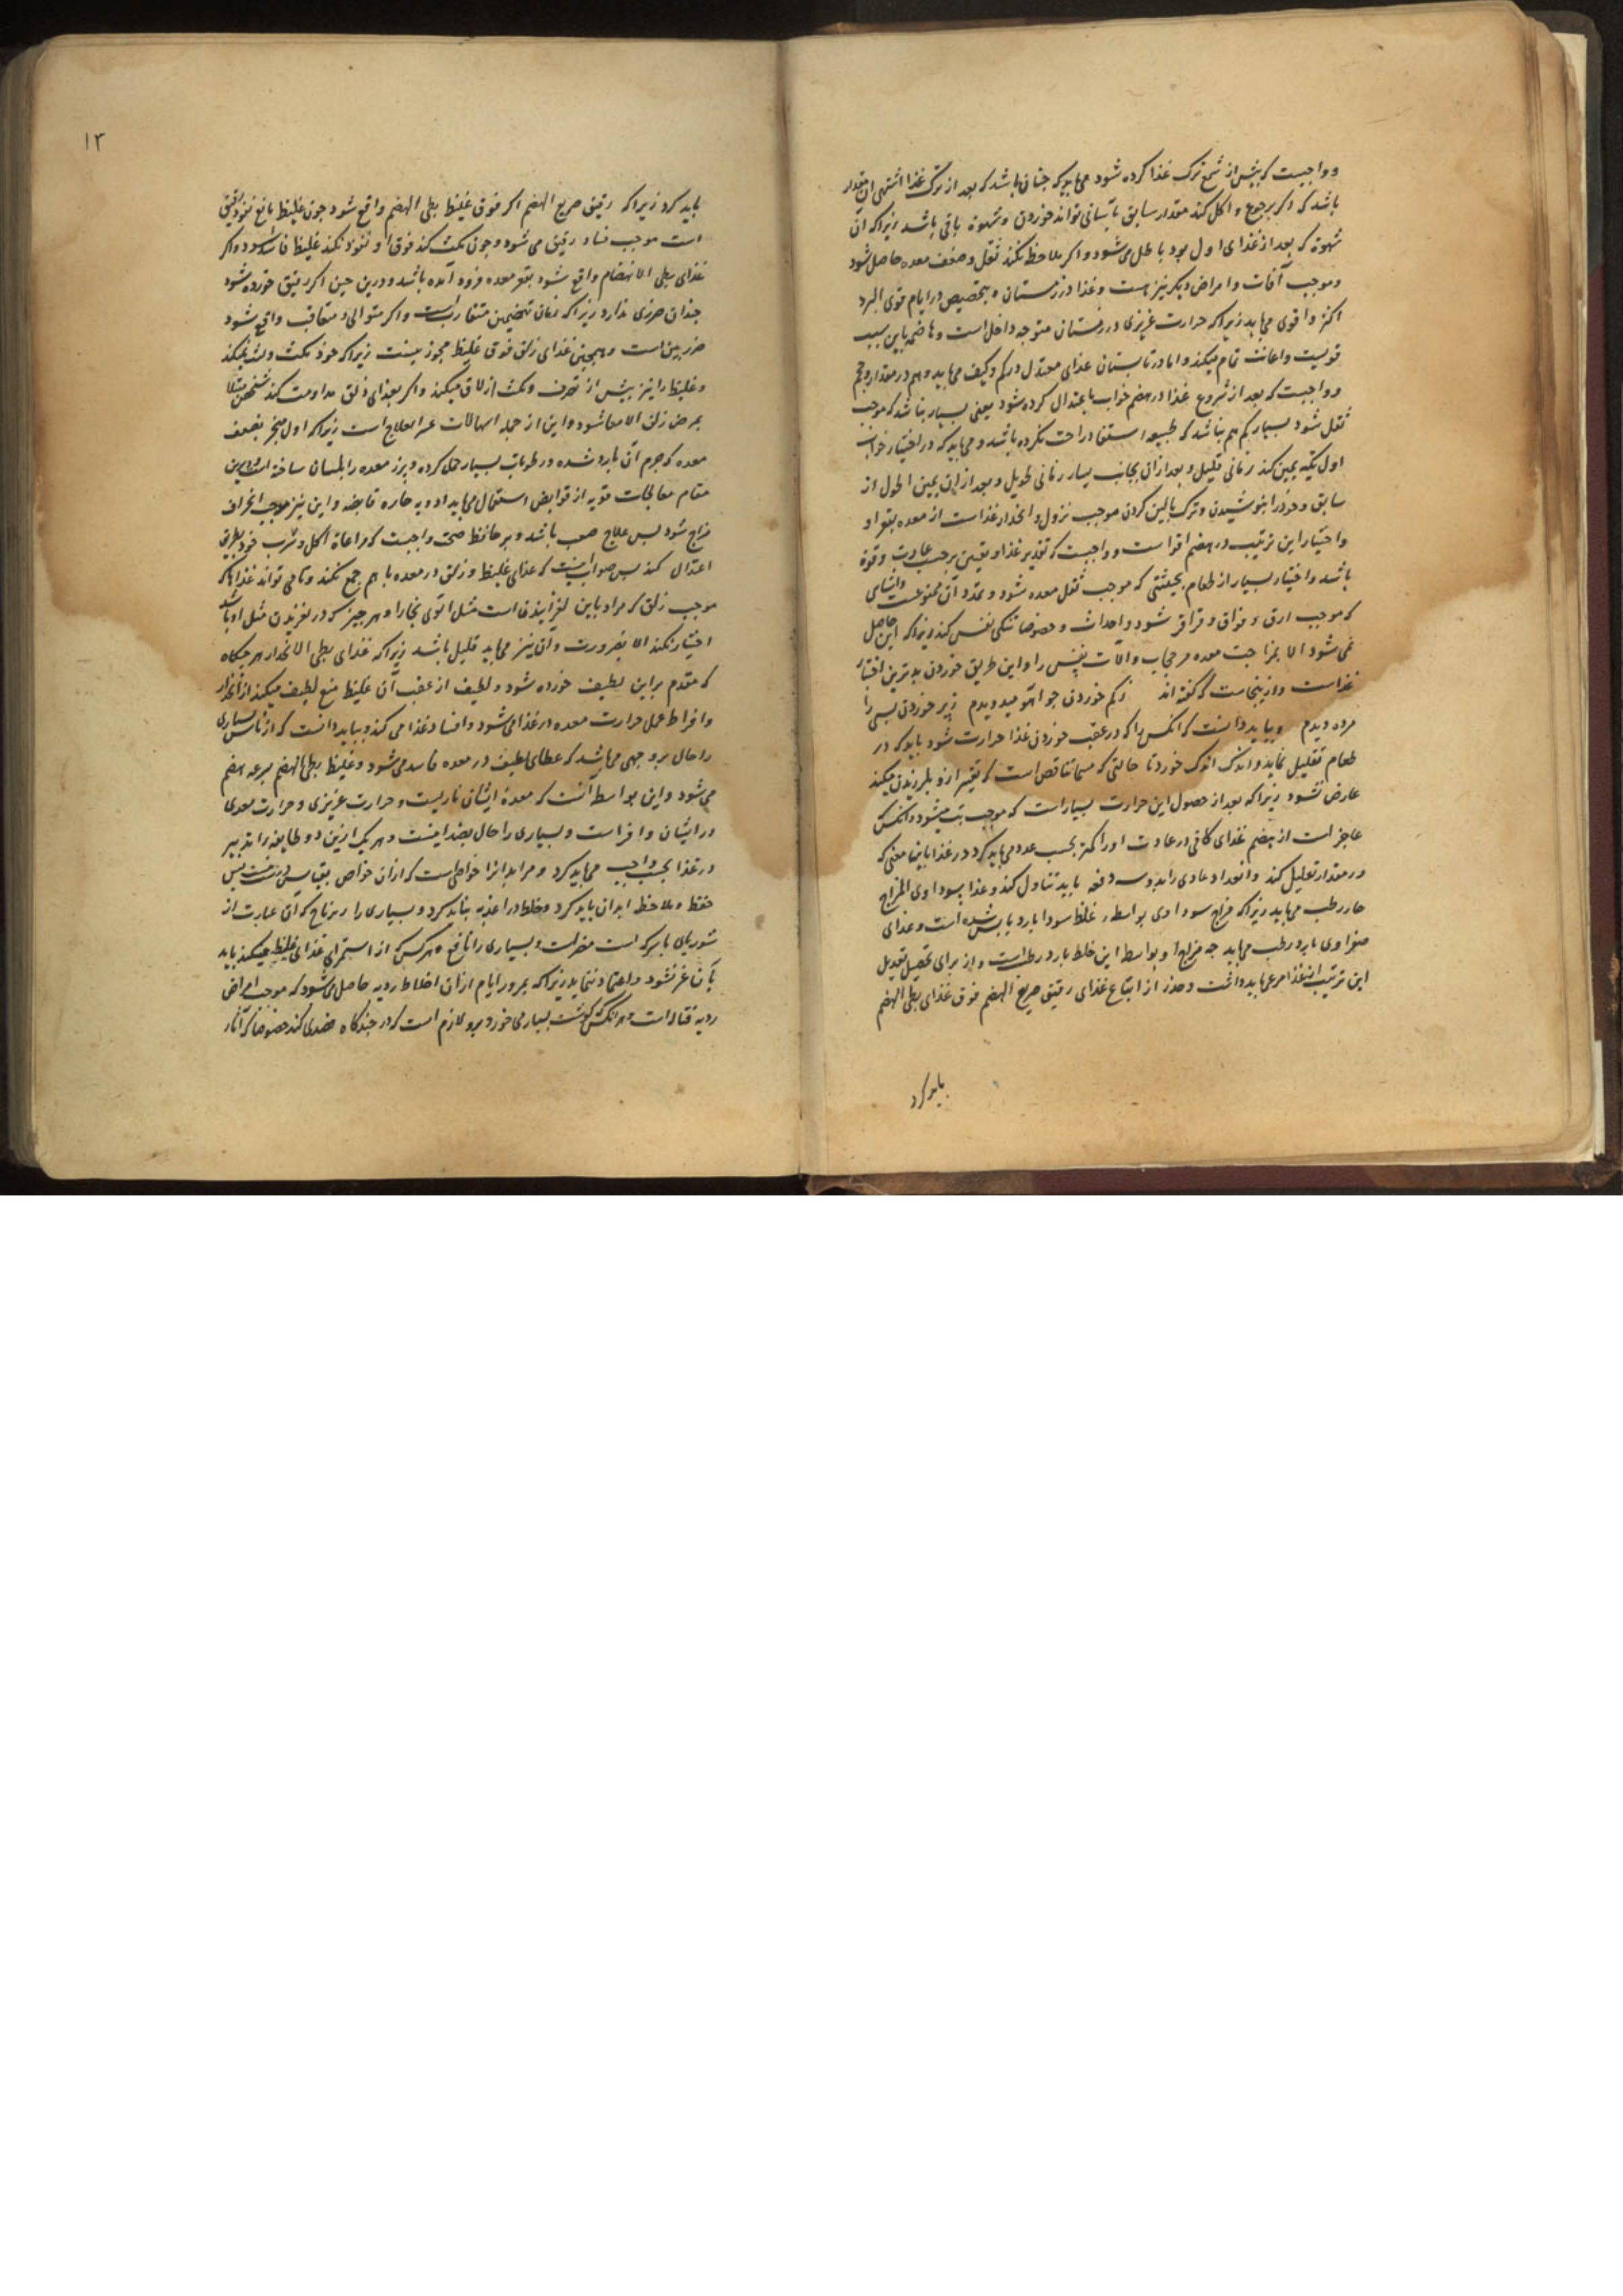 وواجبست که پیش از شبع ترک غذا کرده شود می‌باید که چنان باشد که بعد از ترک غذا اشتهی آن مقدار
باشد که اگر رجوع و اکل کند مقدار سابق بآسانی تواند خوردن و شهوة باقی باشد زیرا که آن
شهوة که بعد از غذای اول بود باطل می‌شود و اگر ملاحظه نکند ثقل و ضعف معده حاصل شود
و موجب آفات و امراض دیگر نیز هست و غذا در زمستان بتخصیص در ایام قوی البرد
اکثر و اقوی می‌باید زیرا که حرارت غریزی در زمستان متوجه داخل است و هاضمه باین سبب
قویست و اعانت تمام میکند و اما در تابستان غذای معتدل در کم و کیف می‌باید و هم در مقدار و حجم
و واجبست که بعد از شروع غذا در هضم خواب باعتدال کرده شود یعنی بسیار نباشد که موجب
ثقل شود بسیار کم هم نباشد که طبیعه استیفا راحت نکرده باشد و می‌باید که در اختیار خواب
اول تکیه بیمین کند زمانی قلیل و بعد از آن بجانب یسار زمانی طویل و بعد از آن بیمین اطول از
سابق و خود را بنوشیدن و ترک بالین کردن موجب نزول و انحدار غذاست از معده بقعر او
و اختیار این ترتیب در هضم اقوا است و واجبست که تقدیر غذا و تعیین بر حسب عادت و قوة
باشد و اختیار بسیار از طعام بحیثیتی که موجب ثقل معده شود و تمدد آن ممنوعست و اشیای
که موجب ارق و فواق و قراقر شود و احداث و خصوصا تنگی نفس کند زیرا که این حاصل
نمی‌شود الا بمزاحمت معده مر حجاب و آلات نفس را و این طریق خوردن بدترین اختیار
غذاست و ازینجاست که گفته اند ز کم خوردن جو آهو میدویدم ز پر خوردن بسی را
مرده دیدم و بباید دانست که آنکس را که در عقب خوردن غذا حرارت شود باید که در
طعام تقلیل نماید و اندک اندک خورد تا حالتی که مسما بناقص است که تعبیر ازو بلرزیدن میکند
عارض نشود زیرا که بعد از حصول این حرارت بسیار است که موجب تب میشود و آنکس
عاجز است از هضم غذای کافی در عادت او را کمتر بحسب عدد می‌باید کرد در غذا باین معنی که
در مقدار تقلیل کند و اعداد عادی را بدو سه دفعه باید تناول کند و غذا سوداوی المزاج
حار رطب می‌باید زیرا که مزاج سوداوی بواسطه غلظ سودا بارد یابس شده است و غذای
صفراوی بارد رطب می‌باید چه مزاج او بواسطه این خلط بارد رطب است و از برای تحصیل تعدیل
این ترتیب را در غذا مرعی باید داشت و حذر از ابتلاع غذای رقیق سریع الهضم فوق غذای بطی الهضم
باید کرد
۱۳
باید کرد زیرا که رقیق سریع الهضم اگر فوق غلیظ بطی الهضم واقع شود چون غلیظ مانع نفوذ رقیق
است موجب فساد رقیق می‌شود و چون مکث کند فوق او و نفوذ نکند غلیظ فاسد شود و اگر
غذای بطی الانهضام واقع شود بقعر معده فرود آمده باشد و درین حین اگر رقیق خورده شود
چندان ضرری ندارد زیرا که زمان هضمین متقارب است و اگر متوالی و متعاقب واقع شود
ضرر بین است و همچنین غذای زلق فوق غلیظ مجوز نیست زیرا که خود مکث و لبث نمیکند
و غلیظ را نیز پیش از تصرف و مکث ازلاق میکند و اگر بغذای زلق مداومت کند شخص مبتلا
بمرض زلق الامعا شود و این از جمله اسهالات عسر العلاج است زیرا که اول منجر بضعف
معده که جرم آن بارد شده و رطوبات بسیار حمل کرده و برز معده را بلسان ساخته است درین
مقام معالجات قویه از قوابض استعمال می‌باید ادویه حاره قابضه و این نیز موجب انحراف
مزاج شود پس علاج صعب باشد و بر حافظ صحت واجبست که مراعاة اکل و شرب خود بطریق
اعتدال کند پس صواب آنست که غذای غلیظ و زلق در معده با هم جمع نکند و تا می تواند غذاها که
موجب زلق که مراد باین لغزانیدن است مثل آلوی بخارا و هر چیز که در لغزیدن مثل او باشد
اختیار نکند الا بضرورت و آن نیز می‌باید قلیل باشد زیرا که غذای بطی الانحدار هر چگاه
که مقدم بر این لطیف خورده شود و لطیف از عقب آن غلیظ منع لطیف میکند از انحدار
و افراط عمل حرارت معده در غذا می‌شود و افساد غذا می کند و بباید دانست که از ناس بسیاری
را حال بر وجهی می‌باشد که غذای لطیف در معده فاسد می‌شود و غلیظ بطی الهضم بسرعه هضم
می‌شود و این بواسطه آنست که معدۀ ایشان ناریست و حرارت غریزی و حرارت معدی
در ایشان وافر است و بسیاری را حال بضد اینست و هر یک ازین دو طایفه را تدبیر
در غذا بحسب واجب می‌باید کرد و مر ابدان را خواصی است که از آن خواص بقیاس درست نیست پس
حفظ و ملاحظه ابدان باید کرد و خلط در اغذیه نباید کرد و بسیاری را سکباج که آن عبارت از
شوربای با سرکه است مضر است و بسیاری را نافع هر کس که از استمرای غذای غلیظ میکند باید
بآن غره نشود و اعتماد ننماید زیرا که بمرور ایام از آن اخلاط ردیه حاصل می‌شود که موجب امراض
ردیه قتاله است و هر آنکس که گوشت بسیار می خورد برو لازم است که در چندگاه فصدی کند خصوصا که آثار